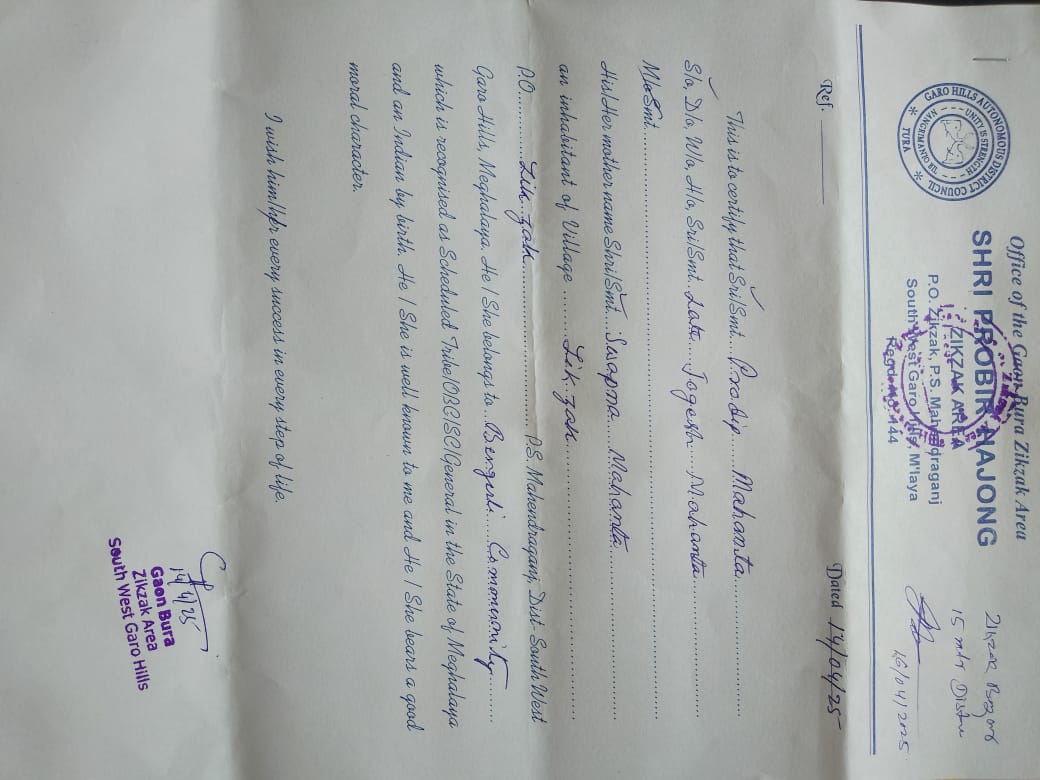 Office of the Gaon Bura Zikzak Area
SHRI PROBIR HAJONG
ZIKZAK AREA
P.O. Zikzak, P.S. Mahendraganj
South West Garo Hills, M'laya
GARO HILLS AUTONOMOUS DISTRICT COUNCIL
UNITY IS STRENGTH
TURA
Zikzak
15
16/04/2025
Ref.
Dated 14/04/25
This is to certify that Sri/Smt. Prodip Mahanta
S/o, D/o, W/o, H/o, Sri/Smt. Late Jogesh Mahanta
M/o Smt.
His/Her mother name Shri/Smt. Swapna Mahanta
an inhabitant of Village Zik zak
P.O. Zik zak P.S. Mahendraganj, Dist- South West
Garo Hills, Meghalaya. He / She belongs to Bengali Community
which is recognised as Scheduled Tribe/OBC/SC/General in the State of Meghalaya
and an Indian by birth. He / She is well known to me and He / She bears a good
moral character.
I wish him/her every success in every step of life.
14/4/25
Gaon Bura
Zikzak Area
South West Garo Hills